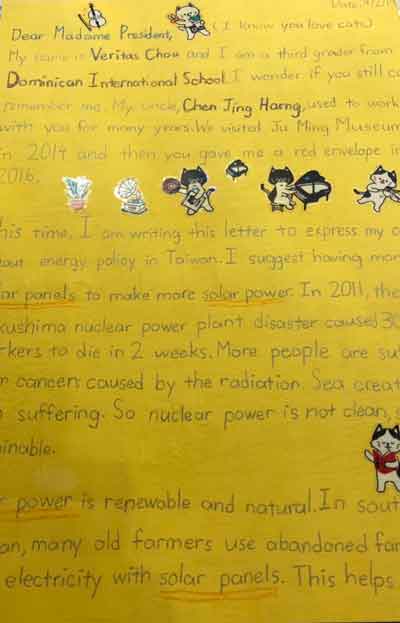 Dear Madame President, (I know you love cats)
My name is Veritas Chou and I am a third grader from
Dominican International School. I wonder if you still
remember me. My uncle, Chen Jing Haerng, used to work
with you for many years. We visited Ju Ming Museum
in 2014 and then you gave me a red envelope in
2016.
This time, I am writing this letter to express my
energy policy in Taiwan. I suggest having
panels to make more solar power. In 2011, the
nuclear power plant disaster caused
to die in 2 weeks. More people are
cancer caused by the radiation. Sea
suffering. So nuclear power is not clean,
power is renewable and natural. In
many old farmers use abandoned
electricity with solar panels. This helps